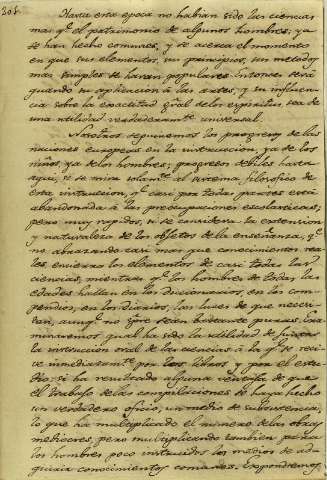 308.
Hasta esta epoca no habian sido las ciencias
mas q.e el patrimonio de algunos hombres; ya
se han hecho comunes, y se acerca el momento
en que sus elementos, sus principios, sus metodos
mas simples se haran populares. Entonces será
quando su aplicacion à las artes, y su influen-
cia sobre la exactitud gral de los espiritus, sea de
una utilidad verdaderam.te universal.
Nosotros seguiremos los progresos de las
naciones europeas en la instruccion, ya de los
niños, ya de los hombres; progresos debiles hasta
aqui, si se mira solam.te al sistema filosofico de
esta instruccion, q.e casi por todas partes está
abandonada à las preocupaciones escolasticas;
pero muy rapidos, si se considera la extension
y naturaleza de los objetos de la enseñanza, q.e
no abrazando casi mas que conocimientos rea-
les, encierra los elementos de casi todas las
ciencias, mientras q.e los hombres de todas las
edades hallan en los diccionarios, en los com-
pendios, en los diarios, las luces de que necesi-
tan, aunq.e no siempre sean bastante puras. Exa-
minaremos, qual ha sido la utilidad de juntar
la instruccion oral de las ciencias à la q.e se reci-
ve inmediatam.te por los libros y por el estu-
dio; si ha resultado alguna ventaja de que
el trabajo de las compilaciones se haya hecho
un verdadero oficio, un medio de subsistencia,
lo que ha multiplicado el numero de las obras
mediocres, pero multiplicando tambien para
los hombres poco instruidos los medios de ad-
quirir conocimientos comunes. Expondremos